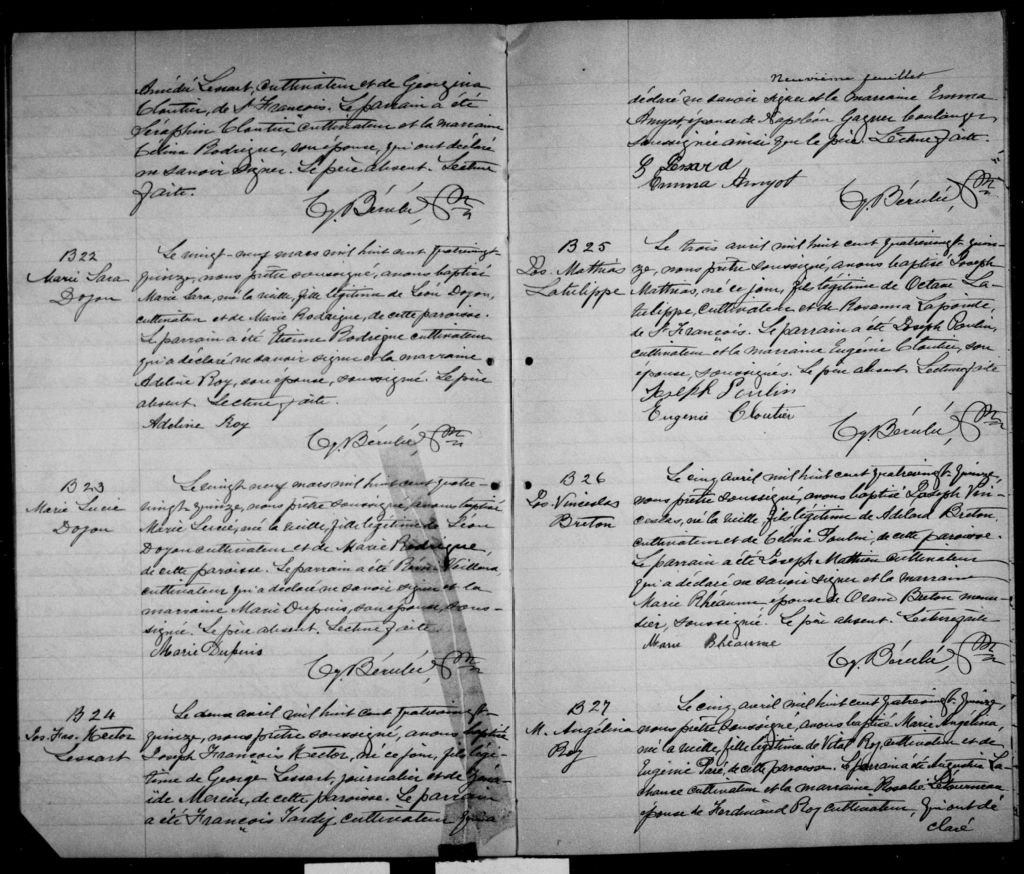 Amédé Lessart, cultivateur et de Georgina
Cloutier, de St François. Le parrain a été
Séraphin Cloutier cultivateur et la marraine
Célina Rodrigue, son épouse, qui ont déclaré
ne savoir signer. Le père absent. Lecture
faite.
Cy. Bérubé, Ptre
B22
Marie Sara
Doyon
Le vingt-neuf mars mil huit cent quatrevingt-
quinze, nous prêtre soussigné, avons baptisé
Marie Sara, née la veille, fille légitime de Léon Doyon,
cultivateur et de Marie Rodrigue, de cette paroisse.
Le parrain a été Etienne Rodrigue cultivateur
qui a déclaré ne savoir signer et la marraine
Adeline Roy, son épouse, soussigné. Le père
absent. Lecture faite.
Adeline Roy
Cy. Bérubé, Ptre
B23
Marie Lucie
Doyon
Le vingt neuf mars mil huit cent quatre-
vingt-quinze, nous prêtre soussigné, avons baptisé
Marie Lucie, née la veille, fille légitime de Léon
Doyon cultivateur et de Marie Rodrigue,
de cette paroisse. Le parrain a été Veilleux,
cultivateur qui a déclaré ne savoir signer et la
marraine Marie Dupuis, son épouse, sous-
signé. Le père absent. Lecture faite
Marie Dupuis
Cy. Bérubé, Ptre
B24
Jos. Frs. Hector
Lessart
Le deux avril mil huit cent quatrevingt-
quinze, nous prêtre soussigné, avons baptisé
Joseph François Hector, né ce jour, fils légi-
time de George Lessart, journalier et de
Mercier, de cette paroisse. Le parrain
a été François Tardif cultivateur qui a
Neuvième feuillet
déclaré ne savoir signer et la marraine Emma
Amyot épouse de Napoléon Gagner boulanger,
soussignée ainsi que le père. Lecture faite.
G Lessard
Emma Amyot
Cy. Bérubé, Ptre
B25
Jos. Mathias
Latulippe
Le trois avril mil huit cent quatrevingt-quin-
ze, nous prêtre soussigné, avons baptisé Joseph
Mathias, né ce jour, fils légitime de Octave La-
tulippe, cultivateur et de Rosanna Lapointe,
de St François. Le parrain a été Joseph Poulin,
cultivateur et la marraine Eugénie Cloutier, son
épouse, soussignés. Le père absent. Lecture faite
Joseph Poulin
Eugenie Cloutier
Cy. Bérubé, Ptre
B26
Jos. Vinceslas
Breton
Le cinq avril mil huit cent quatrevingt-quinze,
nous prêtre soussigné, avons baptisé Joseph Vin-
ceslas, né la veille, fils légitime de Adélard Breton
cultivateur et de Célina Poulin, de cette paroisse.
Le parrain a été Joseph Mathieu cultivateur
qui a déclaré ne savoir signer et la marraine
Marie Rhéaume épouse de Breton menui-
sier, soussigné. Le père absent. Lecture faite
Marie Rhéaume
Cy. Bérubé, Ptre
B27
M. Angélina
Roy
Le cinq avril mil huit cent quatrevingt-quinze,
nous prêtre soussigné, avons baptisé Marie Angelina,
née la veille, fille légitime de Vital Roy, cultivateur et de
Eugénie Paré, de cette paroisse. Le parrain a été Augustin La-
chance cultivateur et la marraine Rosalie Létourneau
épouse de Ferdinand Roy cultivateur, qui ont dé
claré